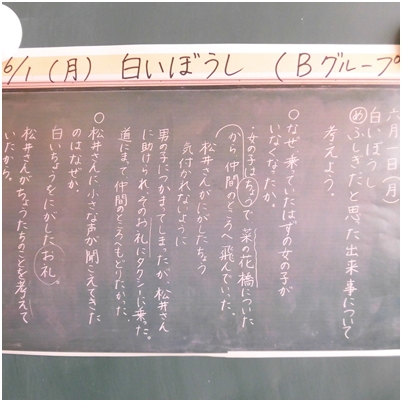 6/1(月) 白いぼうし (Bグループ
六月一日(月)
白いぼうし
めふしぎだと思った出来事について
考えよう。
○なぜ、乗っていたはずの女の子が
いなくなったか。
女の子はちょうで菜の花橋についた
から仲間のところへ飛んでいった。
松井さんがにがしたちょう
気付かれないように
男の子につかまってしまったが、松井さん
に助けられ、そのお礼にタクシーに乗った。
道にまよって仲間のところへもどりたかった。
○松井さんに小さな声が聞こえてきた
のはなぜか。
白いちょうをにがしたお礼。
松井さんがちょうたちのことを考えて
いたから。